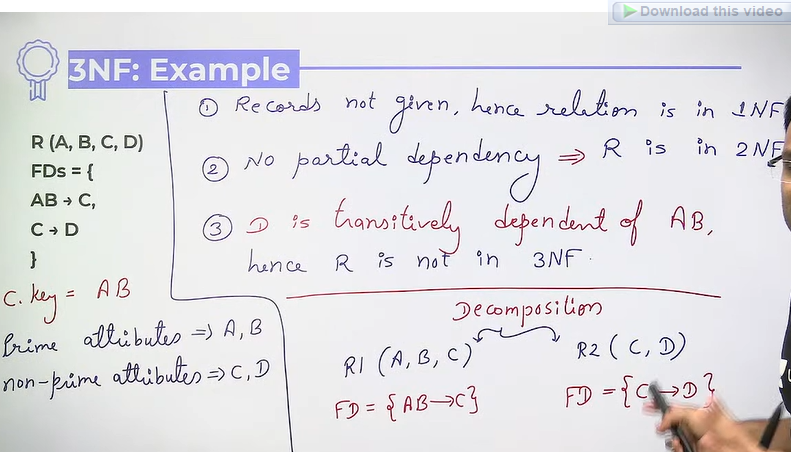 Download this video
3NF: Example
R (A, B, C, D)
FDs = {
AB → C,
C → D
}
C. key = AB
Prime attributes => A, B
non-prime attributes => C, D
① Records not given, hence relation is in 1NF
② No partial dependency => R is in 2NF
③ D is transitively dependent of AB,
hence R is not in 3NF.
Decomposition
R1 (A, B, C)
FD = {AB → C}
R2 (C, D)
FD = {C → D}